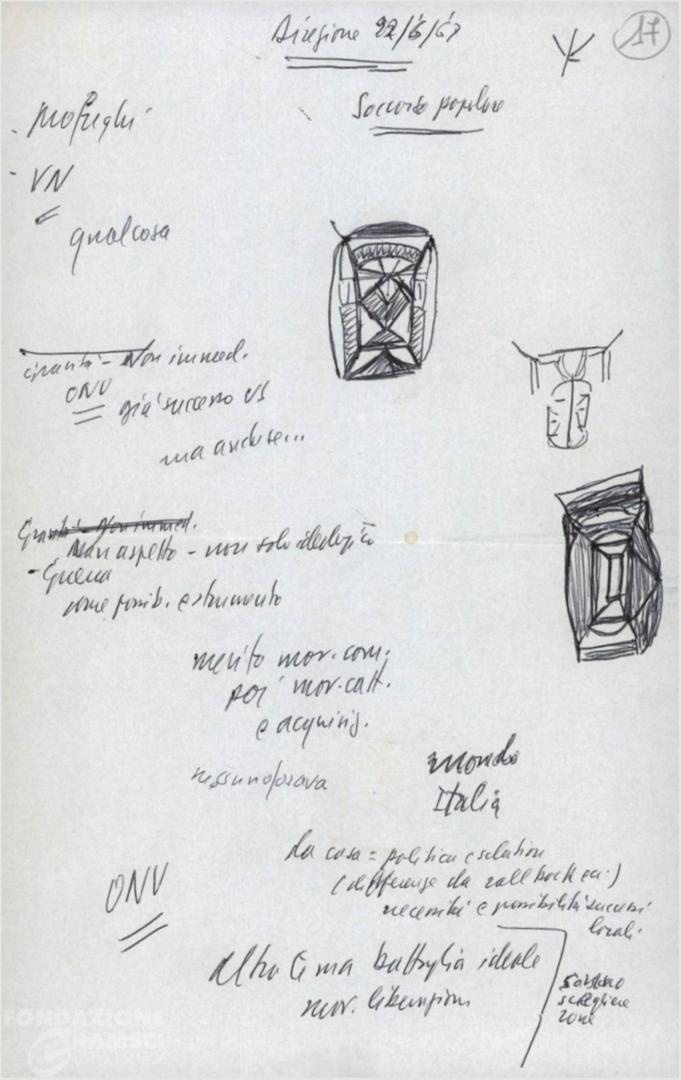 Direzione 22/6/67
17
Soccorso popolare
- Profughi
- VN
qualcosa
Gravità - Non immed.
ONU
già successo US
ma anche se...
Gravità - Non immed.
aspetto - non solo ideologico
- Guerra
come possib. e strumento
merito mov. com.
poi mov. catt.
e acquisiz.
nessuno osava
mondo
Italia
da cosa = politica escalation
(differenze da roll back ecc.)
necessità e possibilità successi
locali
ONU
altro tema battaglia ideale
mov. liberazioni
scegliere
zone
FONDAZIONE
GRAMSCI